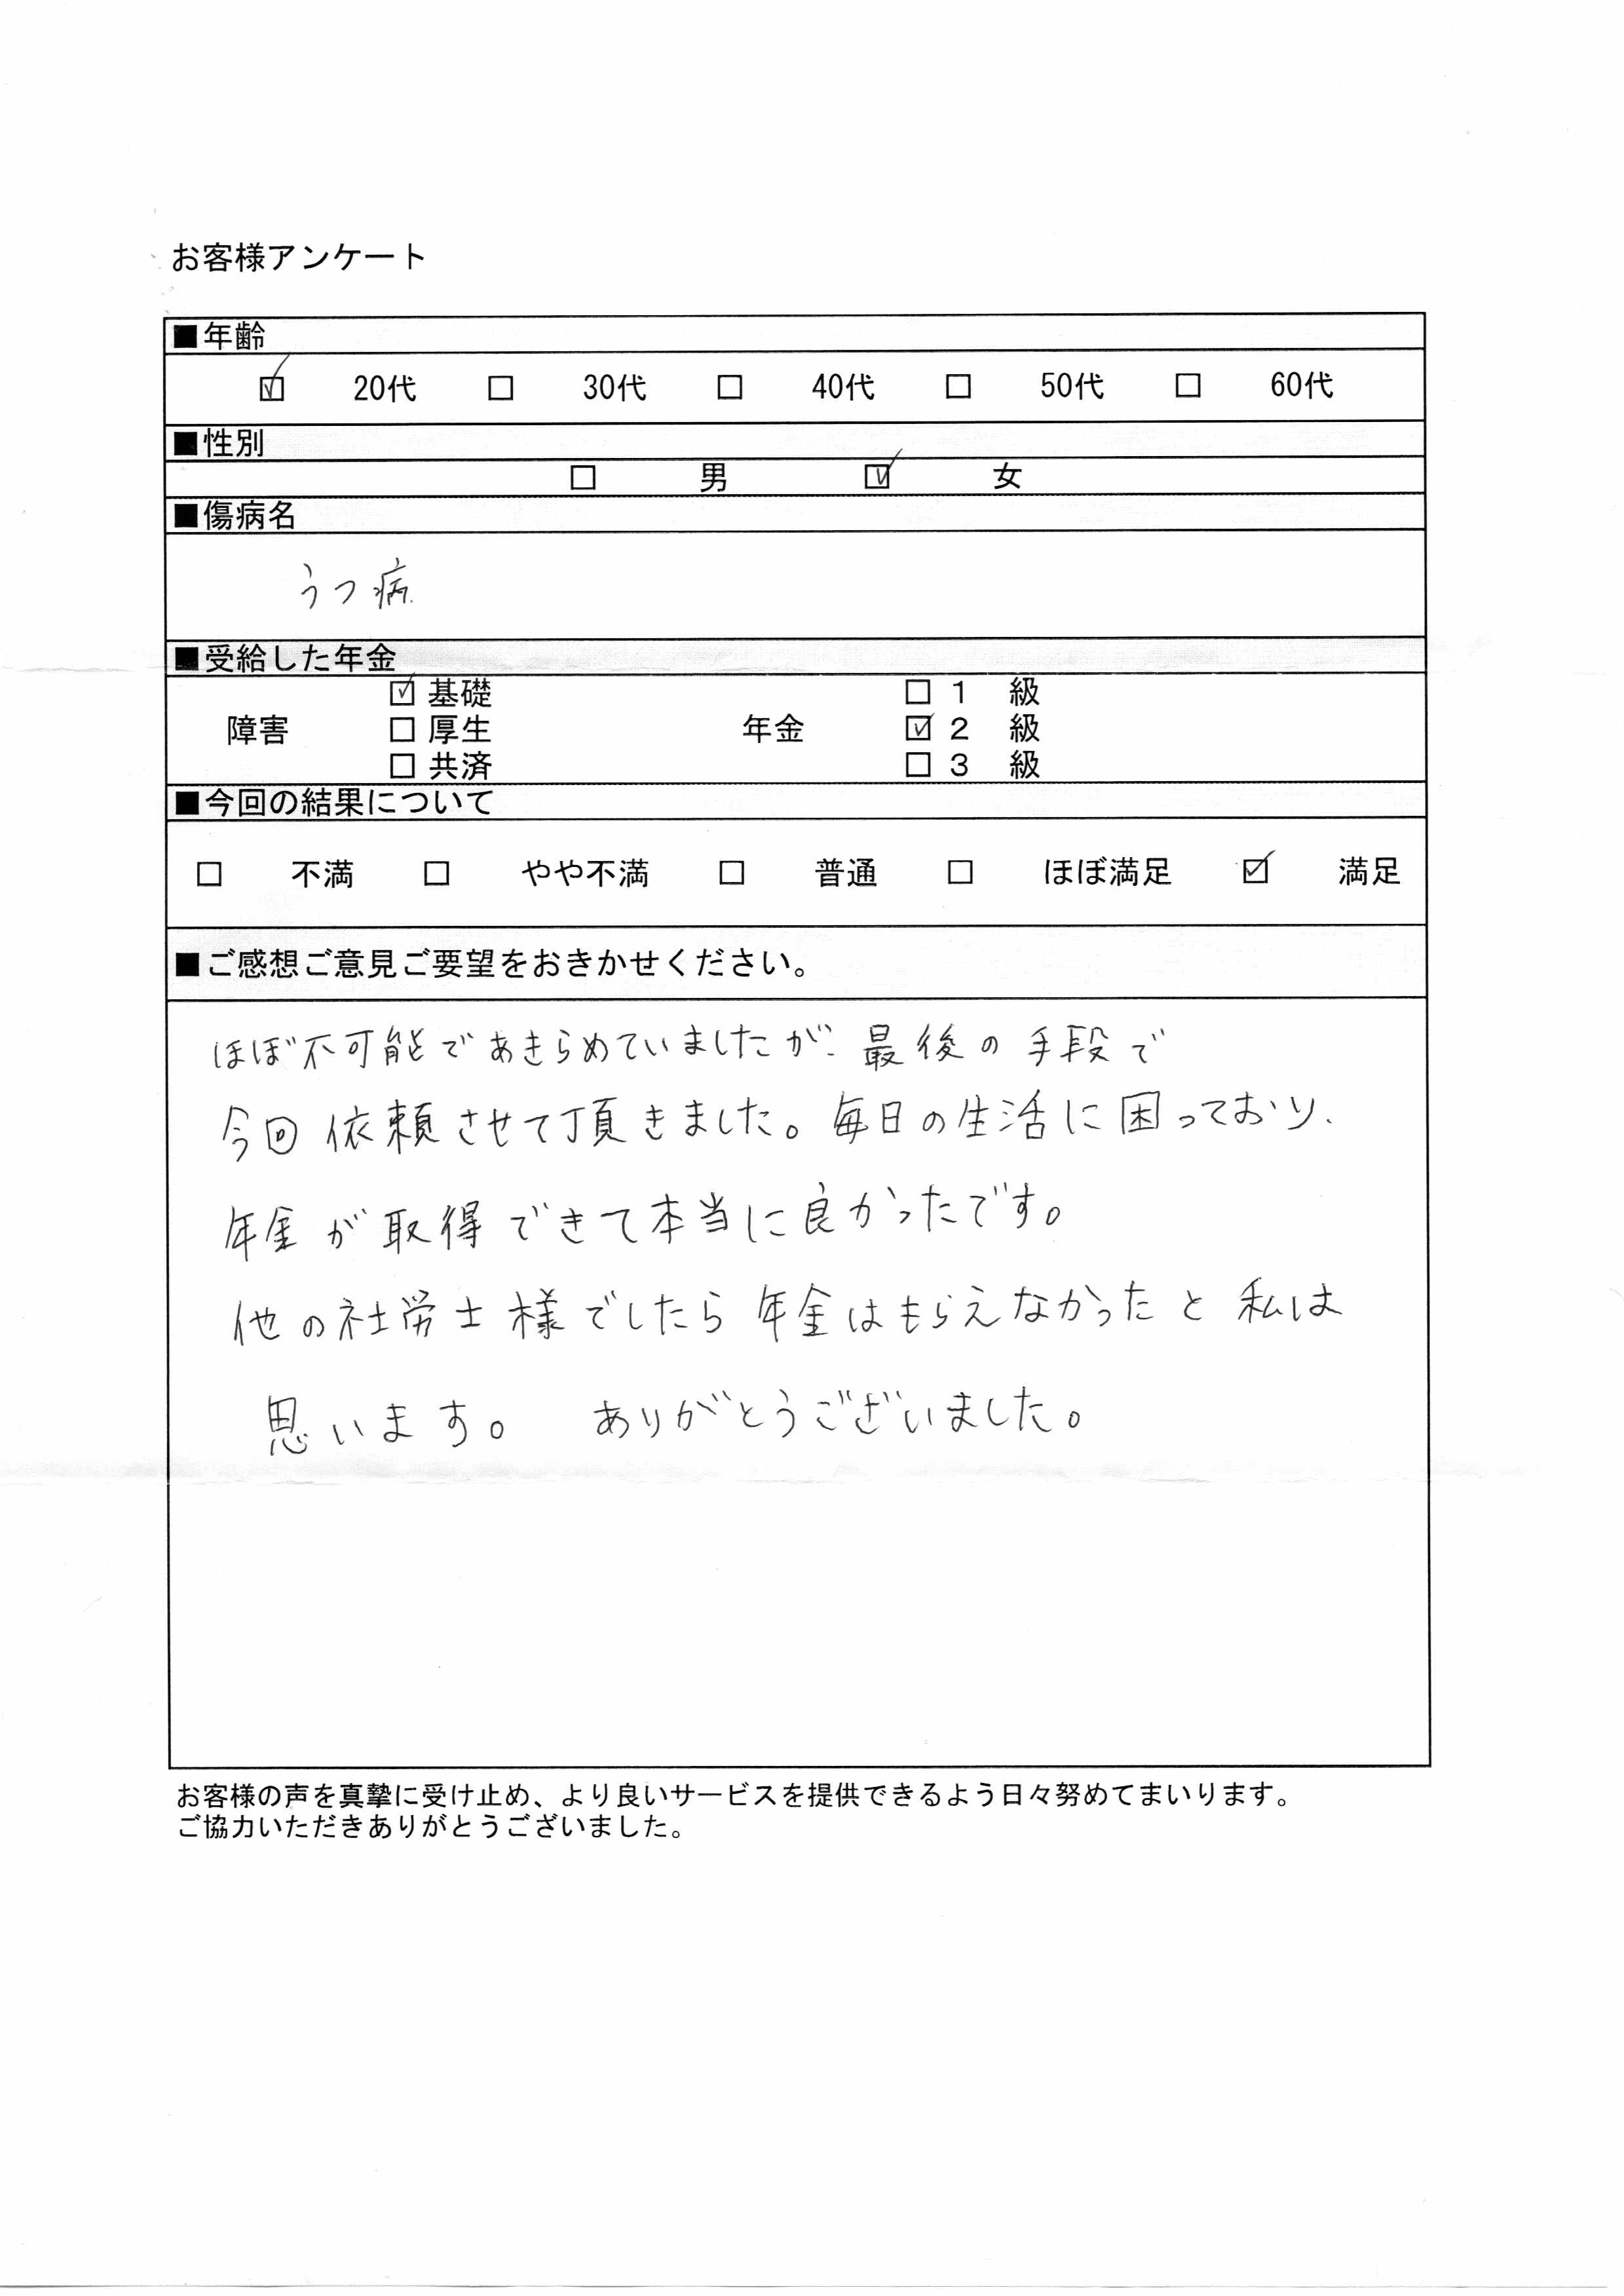 お客様アンケート
■年齢
☑ 20代 □ 30代 □ 40代 □ 50代 □ 60代
■性別
□ 男 ☑ 女
■傷病名
うつ病
■受給した年金
☑ 基礎 □ 1 級
障害 □ 厚生 年金 ☑ 2 級
□ 共済 □ 3 級
■今回の結果について
□ 不満 □ やや不満 □ 普通 □ ほぼ満足 ☑ 満足
■ご感想ご意見ご要望をおきかせください。
ほぼ不可能であきらめていましたが、最後の手段で
今回依頼させて頂きました。毎日の生活に困っており、
年金が取得できて本当に良かったです。
他の社労士様でしたら年金はもらえなかったと私は
思います。 ありがとうございました。
お客様の声を真摯に受け止め、より良いサービスを提供できるよう日々努めてまいります。
ご協力いただきありがとうございました。